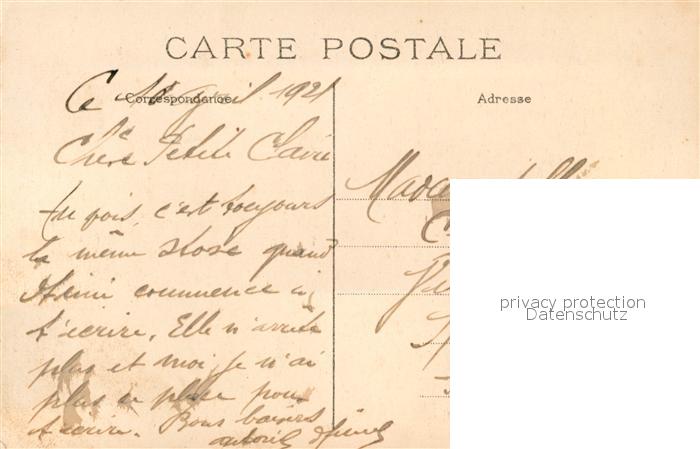 CARTE POSTALE
Correspondance
Adresse
Ce avril 1921
Chère Petite Claire
Tu vois, c'est toujours
la même chose quand
commence à
t'écrire. Elle n'arrête
plus et moi je n'ai
plus de place pour
t'écrire. Bons baisers
privacy protection
Datenschutz